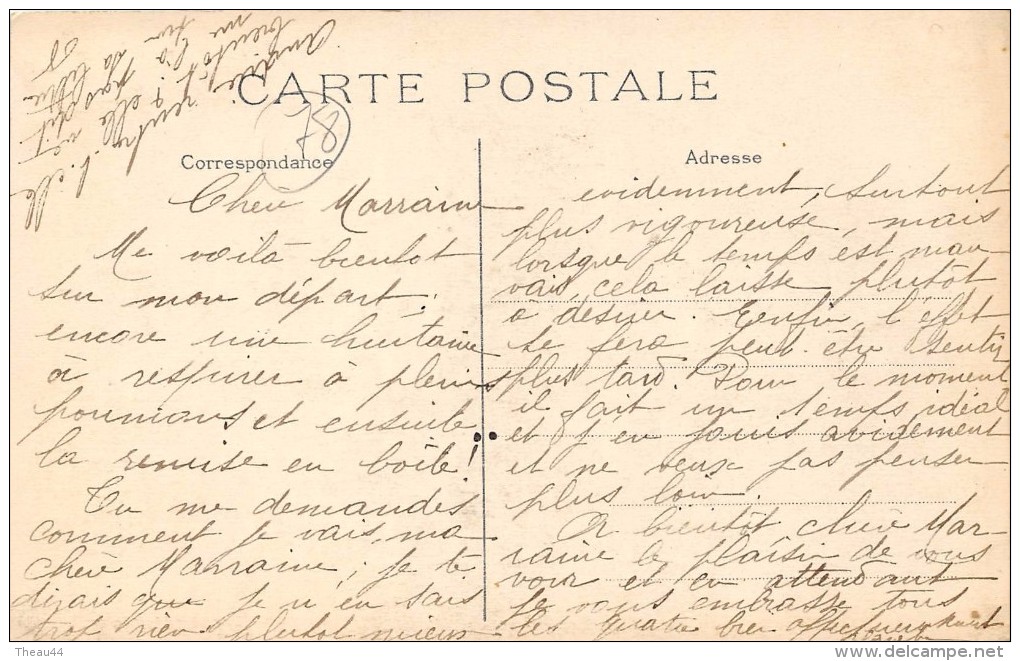 CARTE POSTALE
78
Correspondance
Adresse
Chère Marraine
Me voilà bientot
sur mon départ.
encore une huitaine
à respirer à pleins
poumons et ensuite
la remise en boîte!
Tu me demandes
comment je vais, ma
chère Marraine, je te
dirais que je n'en sais
trop rien plutot mieux
evidemment, surtout
plus vigoureuse, mais
lorsque le temps est mau
vais, cela laisse plutôt
à desirer. Enfin, l'effet
se fera peut-être sentir
plus tard. Pour le moment
il fait un temps idéal
et j'en jouis avidement
et ne veux pas penser
plus loin.
A bientôt chère Mar-
raine le plaisir de vous
voir et en attendant
je vous embrasse tous
les quatre bien
rentre
elle
bientôt
pas dit
sa lettre
Theau44
www.delcampe.net